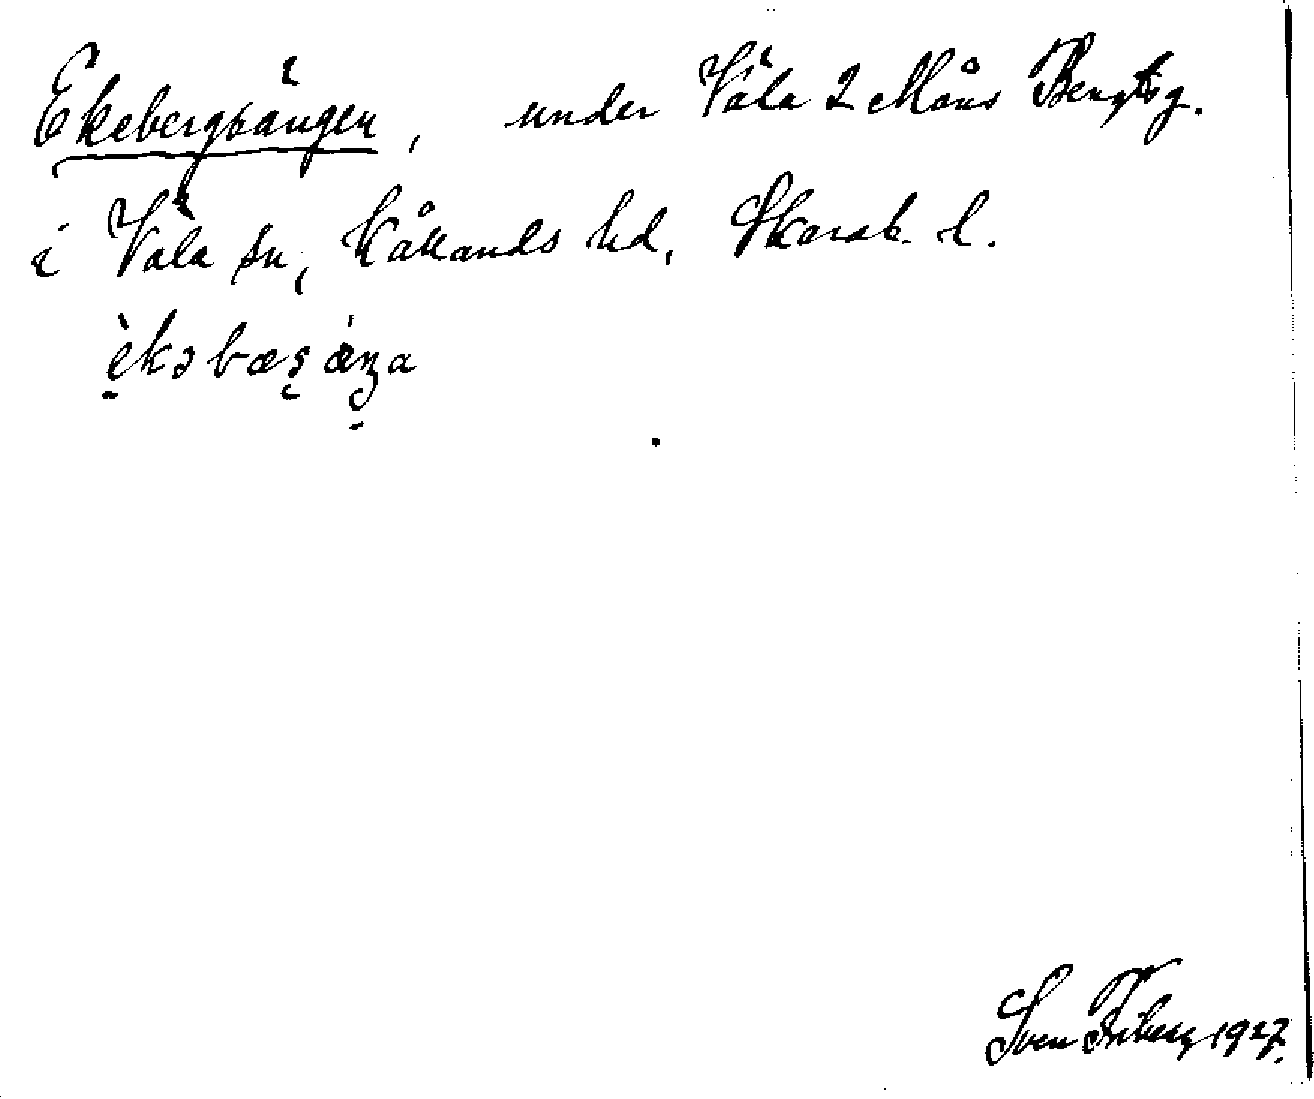 Ekebergsängen, under Väla 2 Måns Bengtsg.
i Väla sn, Kållands hd, Skarab. l.
èkəbæs̨ ǽŋa
Sven Friberg 1927.